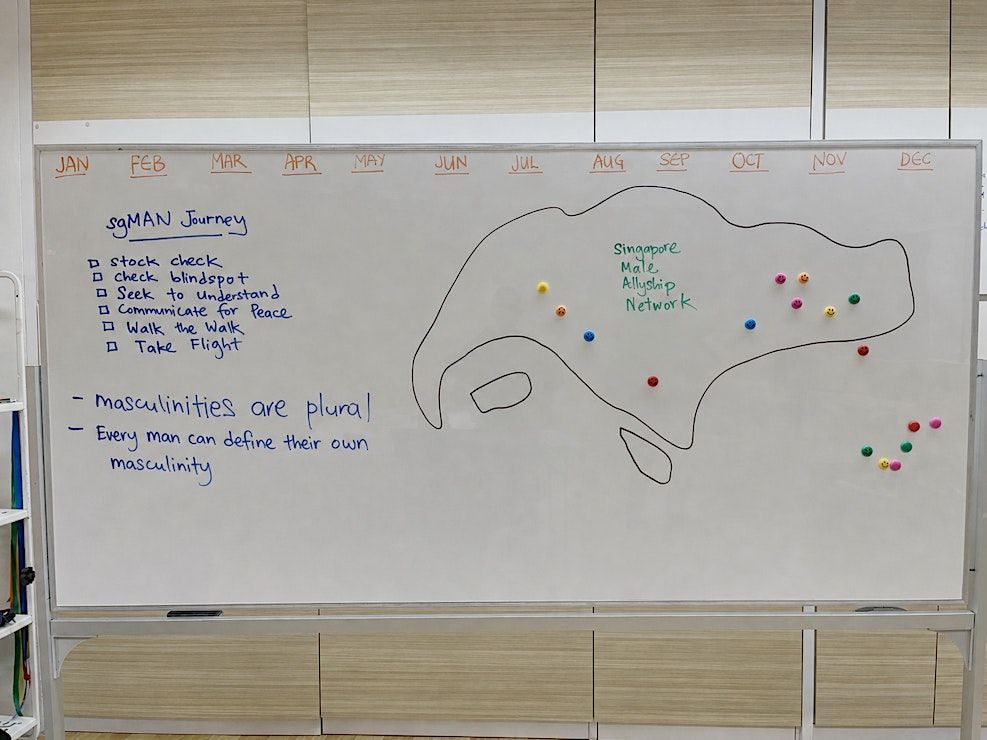 JAN FEB MAR APR MAY JUN JUL AUG SEP OCT NOV DEC
sgMAN Journey
□ Stock check
□ Check blindspot
□ Seek to Understand
□ Communicate for Peace
□ Walk the Walk
□ Take Flight
- masculinities are plural
- Every man can define their own
masculinity
Singapore
Male
Allyship
Network